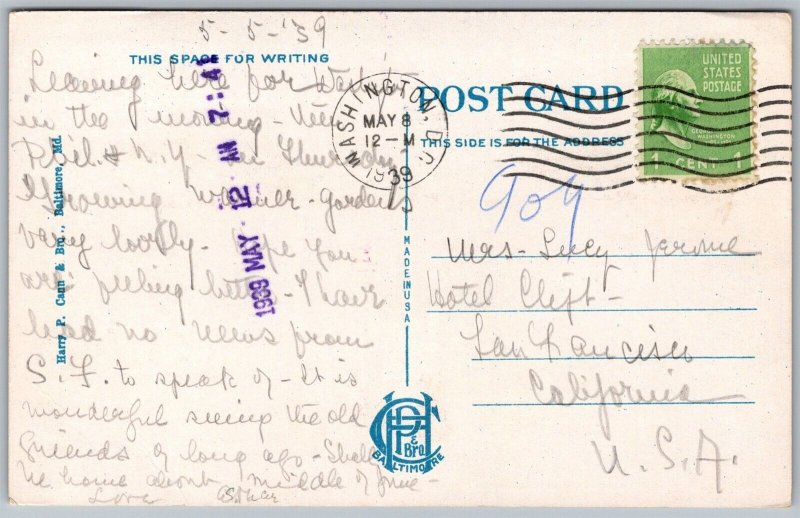 5-5-'39
THIS SPACE FOR WRITING
Leaving here for
in the morning - then
Phil. & N.Y. - on Thursday
Growing warmer - gardens
very lovely - Hope you
are feeling better - I have
had no news from
S.F. to speak of - It is
wonderful seeing the old
friends of long ago - Shall
be home about middle of June -
Love
Harry P. Cann & Bro., Baltimore, Md.
1939 MAY 12 AM 7:
WASHINGTON, D.C.
MAY 8
12-M
1939
POST CARD
THIS SIDE IS FOR THE ADDRESS
UNITED
STATES
POSTAGE
GEORGE
WASHINGTON
1 CENT 1
904
Mrs. Lucy Jerome
Hotel Clift -
San Francisco
California
U.S.A.
MADE IN USA
HPC
& Bro.
BALTIMORE